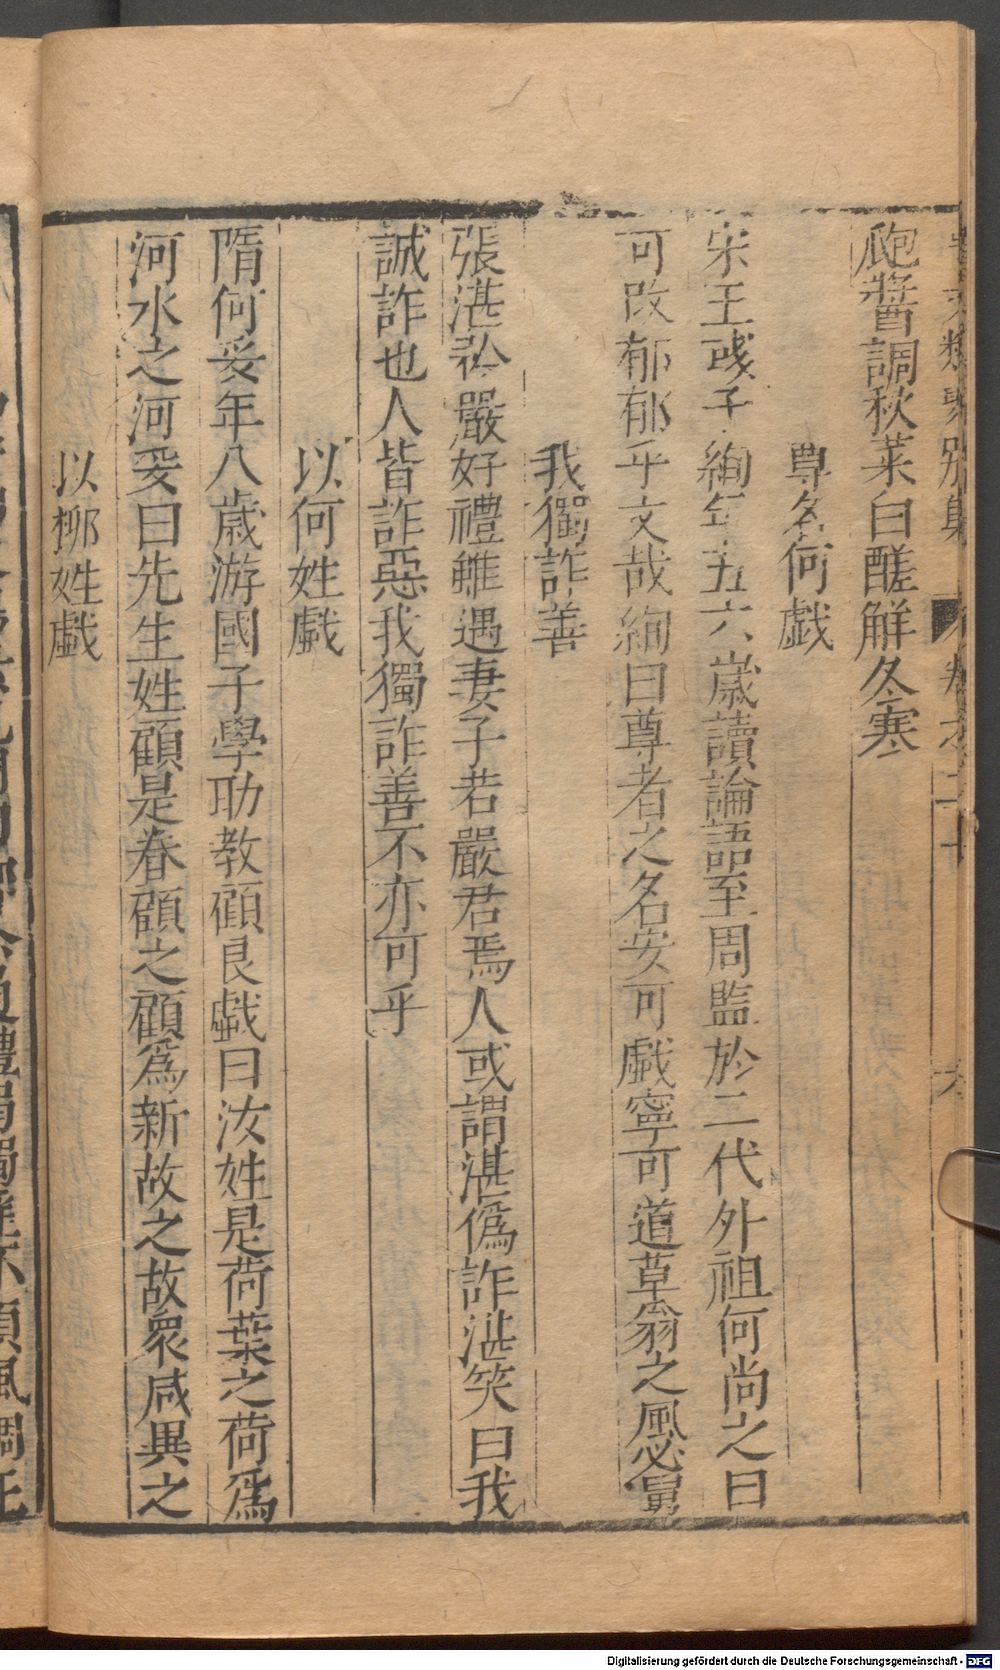 事文類聚別集 卷之二十 六
瓟醬調秋菜白醝解冬寒
尊名何戯
宋王彧子絢年五六歲讀論語至周監於二代外祖何尚之曰
可改郁郁乎文哉絢曰尊者之名安可戯寧可道草翁之風必舅
我獨詐善
張湛矜嚴好禮雖遇妻子若嚴君焉人或謂湛僞詐湛笑曰我
誠詐也人皆詐惡我獨詐善不亦可乎
以何姓戯
隋何妥年八歲游國子學助教顧良戯曰汝姓是荷葉之荷爲
河水之河妥曰先生姓顧是眷顧之顧爲新故之故衆咸異之
以柳姓戯
Digitalisierung gefördert durch die Deutsche Forschungsgemeinschaft - DFG